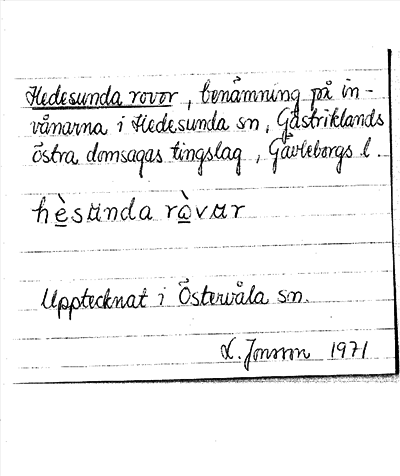 Hedesunda rovor, benämning på in-
vånarna i Hedesunda sn, Gästriklands
östra domsagas tingslag, Gävleborgs l.
hèsʉnda ràvʉr
Upptecknat i Östervåla sn.
L. Jonsson 1971